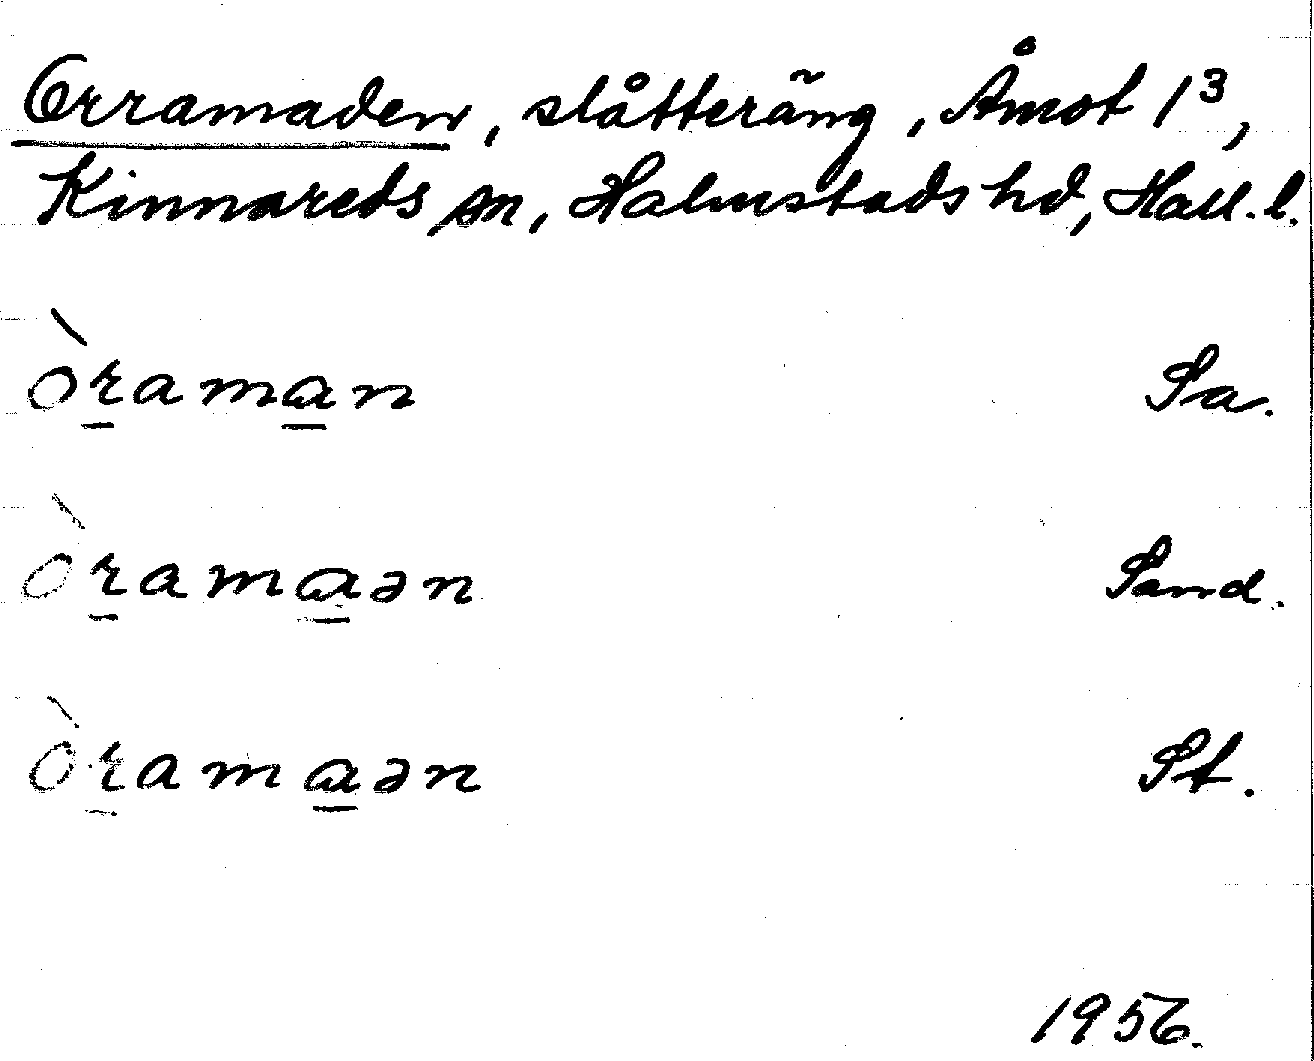 Orramaden, slåtteräng, Åmot 1³,
Kinnareds sn, Halmstads hd, Hall. l.
òr̲ama̲n Sa.
òr̲ama̲ən Sand.
òr̲ama̲ən St.
1956.